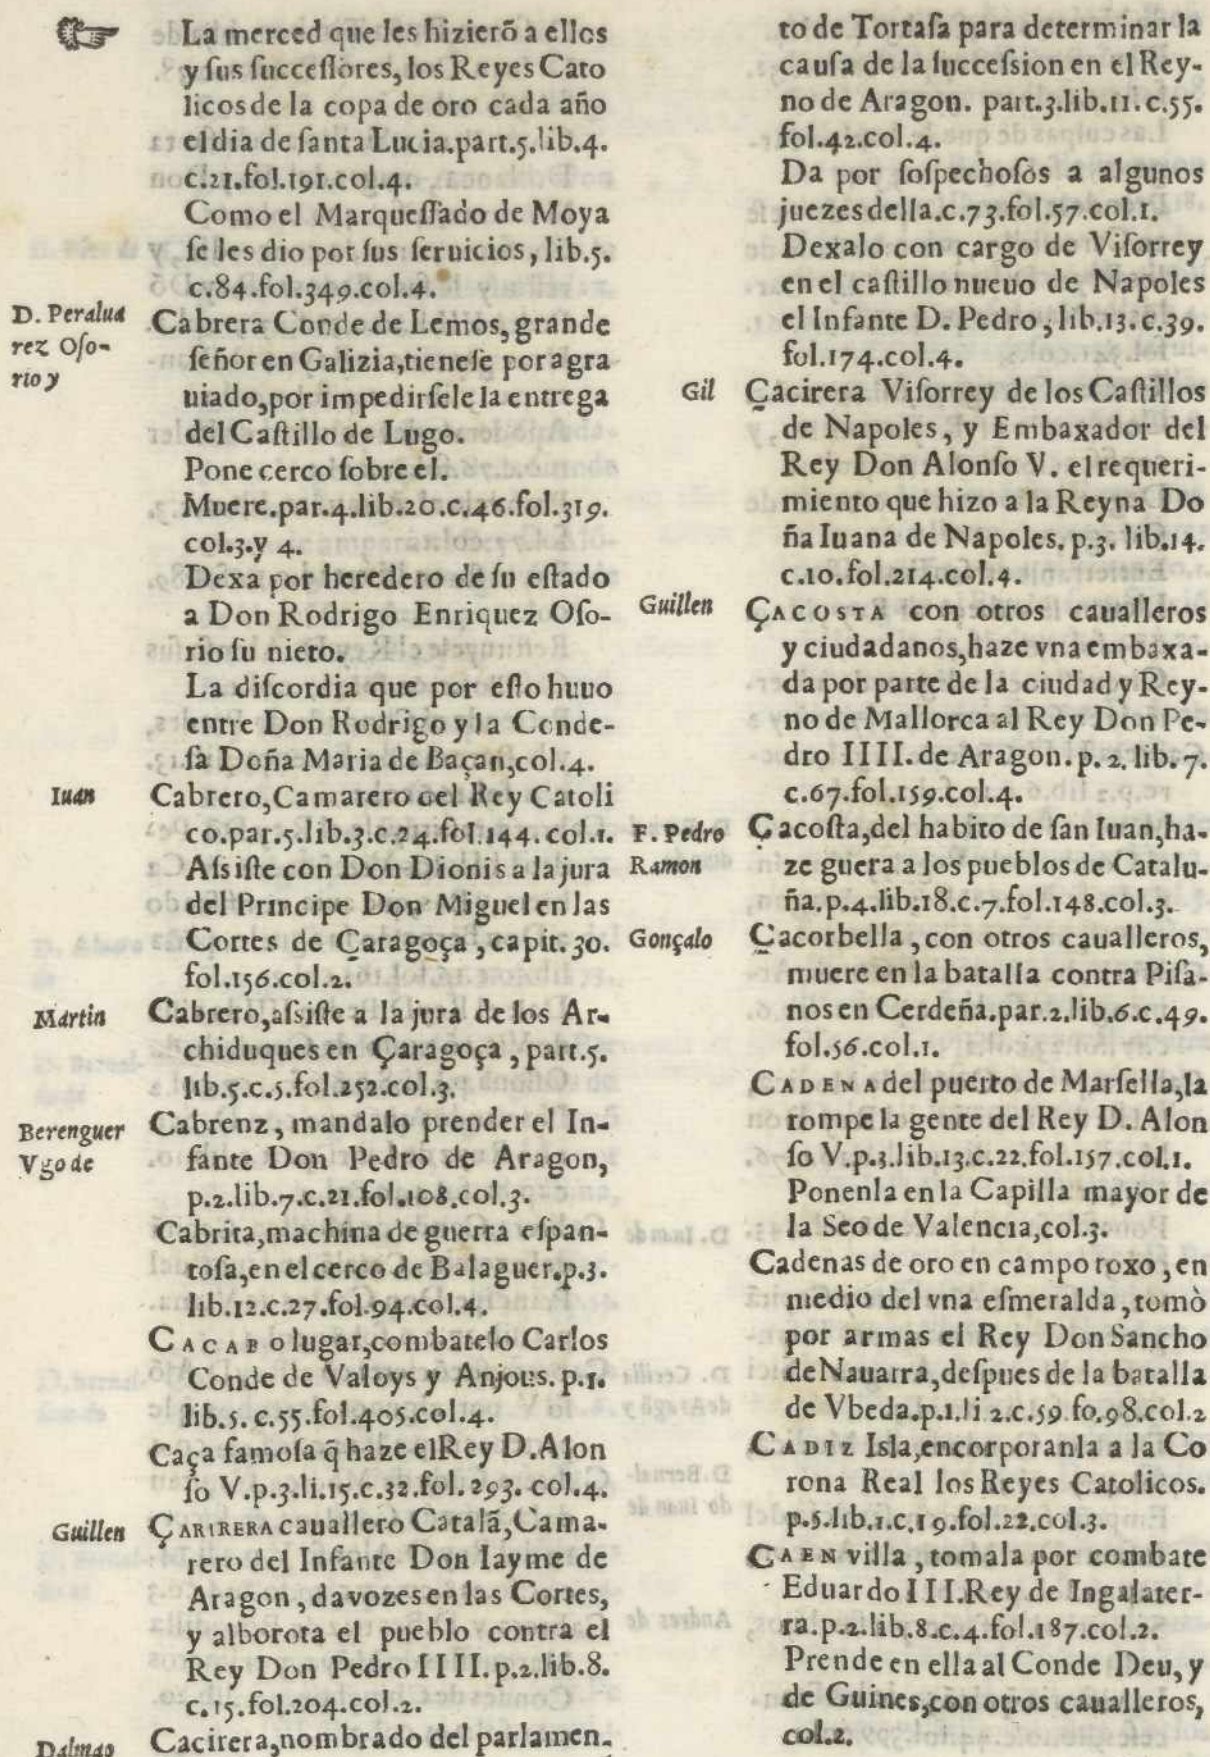 La merced que les hizierõ a ellos
y ſus ſucceſſores, los Reyes Cato
licos de la copa de oro cada año
el dia de ſanta Lucia. part.5.lib.4.
c.21.fol.191.col.4.
Como el Marqueſſado de Moya
ſe les dio por ſus ſeruicios, lib.5.
c.84.fol.349.col.4.
D. Peralua
rez Oſo-
rio y
Cabrera Conde de Lemos, grande
ſeñor en Galizia, tieneſe por agra
uiado, por impedirſele la entrega
del Caſtillo de Lugo.
Pone cerco ſobre el.
Muere.par.4.lib.20.c.46.fol.319.
col.3.y 4.
Dexa por heredero de ſu eſtado
a Don Rodrigo Enriquez Oſo-
rio ſu nieto.
La diſcordia que por eſto huuo
entre Don Rodrigo y la Conde-
ſa Doña Maria de Baçan, col.4.
Iuan
Cabrero, Camarero del Rey Catoli
co.par.5.lib.3.c.24.fol.144.col.1.
Aſsiſte con Don Dionis a la jura
del Principe Don Miguel en las
Cortes de Çaragoça, capit.30.
fol.156.col.2.
Martin
Cabrero, aſsiſte a la jura de los Ar-
chiduques en Çaragoça, part.5.
lib.5.c.5.fol.252.col.3.
Berenguer
Vgo de
Cabrenz, mandalo prender el In-
fante Don Pedro de Aragon,
p.2.lib.7.c.21.fol.108.col.3.
Cabrita, machina de guerra eſpan-
toſa, en el cerco de Balaguer.p.3.
lib.12.c.27.fol.94.col.4.
CACABO lugar, combatelo Carlos
Conde de Valoys y Anjous. p.1.
lib.5.c.55.fol.405.col.4.
Caça famoſa q̃ haze el Rey D. Alon
ſo V.p.3.li.15.c.32.fol.293.col.4.
Guillen
ÇARIRERA cauallero Catalã, Cama-
rero del Infante Don Iayme de
Aragon, da vozes en las Cortes,
y alborota el pueblo contra el
Rey Don Pedro IIII.p.2.lib.8.
c.15.fol.204.col.2.
Dalmao
Cacirera, nombrado del parlamen-
to de Tortaſa para determinar la
cauſa de la ſucceſsion en el Rey-
no de Aragon. part.3.lib.11.c.55.
fol.42.col.4.
Da por ſoſpechoſos a algunos
juezes della.c.73.fol.57.col.1.
Dexalo con cargo de Viſorrey
en el caſtillo nueuo de Napoles
el Infante D. Pedro, lib.13.c.39.
fol.174.col.4.
Gil
Çacirera Viſorrey de los Caſtillos
de Napoles, y Embaxador del
Rey Don Alonſo V. el requeri-
miento que hizo a la Reyna Do
ña Iuana de Napoles. p.3. lib.14.
c.10.fol.214.col.4.
Guillen
ÇACOSTA con otros caualleros
y ciudadanos, haze vna embaxa-
da por parte de la ciudad y Rey-
no de Mallorca al Rey Don Pe-
dro IIII. de Aragon. p.2. lib.7.
c.67.fol.159.col.4.
F. Pedro
Ramon
Çacoſta, del habito de ſan Iuan, ha-
ze guera a los pueblos de Catalu-
ña.p.4.lib.18.c.7.fol.148.col.3.
Gonçalo
Çacorbella, con otros caualleros,
muere en la batalla contra Piſa-
nos en Cerdeña.par.2.lib.6.c.49.
fol.56.col.1.
CADENA del puerto de Marſella, la
rompe la gente del Rey D. Alon
ſo V.p.3.lib.13.c.22.fol.157.col.1.
Ponenla en la Capilla mayor de
la Seo de Valencia, col.3.
Cadenas de oro en campo roxo, en
medio del vna eſmeralda, tomò
por armas el Rey Don Sancho
de Nauarra, deſpues de la batalla
de Vbeda.p.1.li 2.c.59.fo.98.col.2
CADIZ Isla, encorporanla a la Co
rona Real los Reyes Catolicos.
p.5.lib.1.c.19.fol.22.col.3.
CAEN villa, tomala por combate
Eduardo III. Rey de Ingalater-
ra.p.2.lib.8.c.4.fol.187.col.2.
Prende en ella al Conde Deu, y
de Guines, con otros caualleros,
col.2.